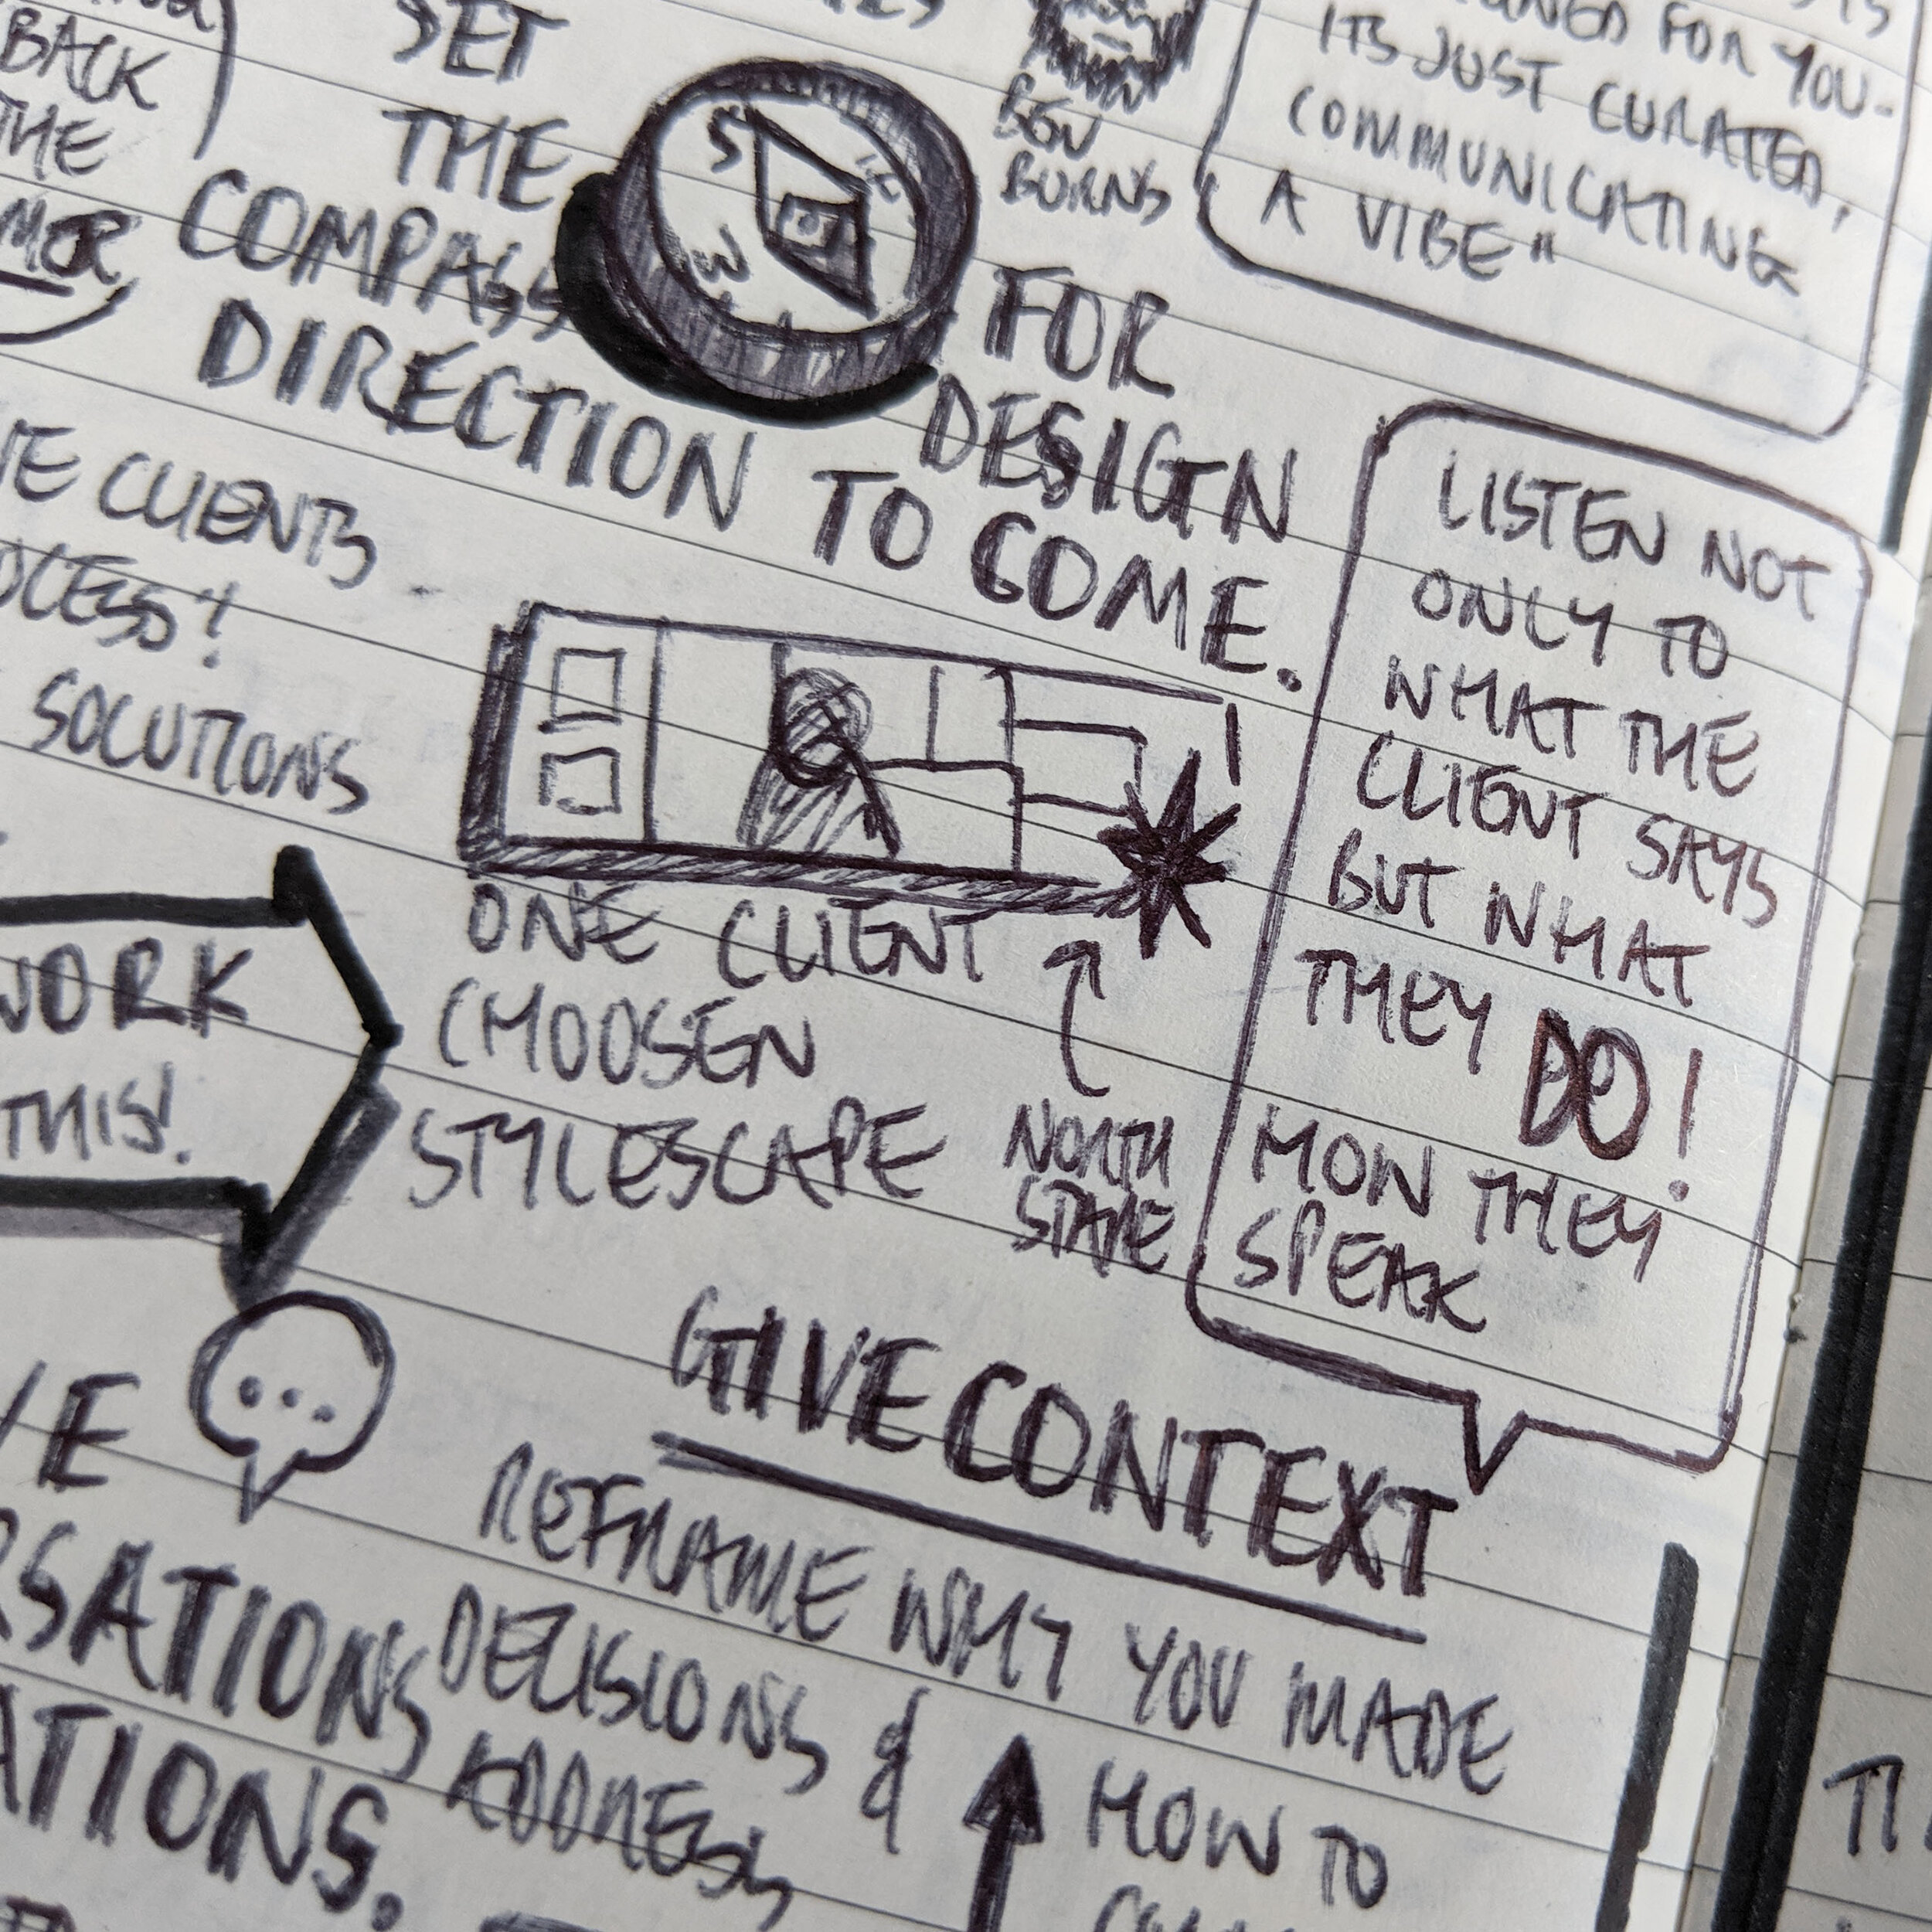 BACK
THE
SET
THE
COMPASS
DIRECTION
FOR
DESIGN
TO COME.
S
W
BEN
BURNS
FOR YOU-
ITS JUST CURATED,
COMMUNICATING
A VIBE"
LISTEN NOT
ONLY TO
WHAT THE
CLIENT SAYS
BUT WHAT
THEY DO!
HOW THEY
SPEAK
CLIENTS
SOLUTIONS
WORK
THIS!
ONE CLIENT
CHOOSEN
STYLESCAPE
NORTH
STARE
GIVE CONTEXT
REFRAME WHY YOU MADE
DECISIONS &
ADDRESS
HOW TO